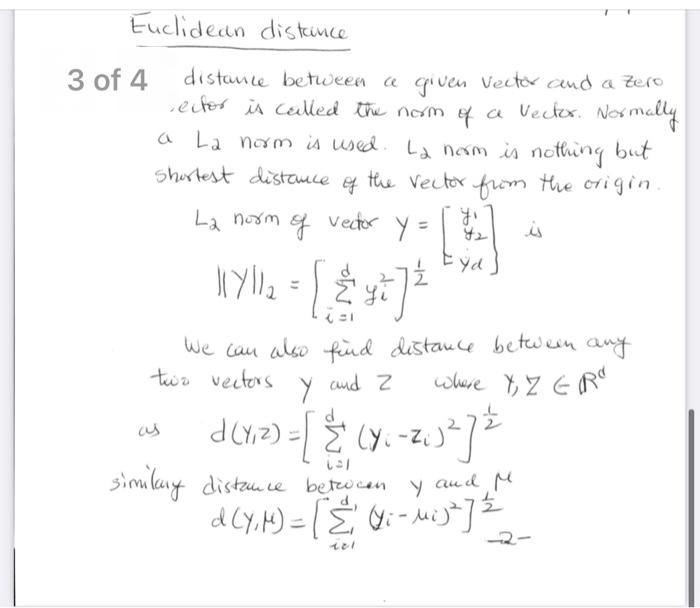 Euclidean distance
3 of 4 distance between a given vector and a zero
ector is called the norm of a vector. Normally
a L2 norm is used. L2 norm is nothing but
shortest distance of the vector from the origin.
L2 norm of vector y = [y1 y2 : yd] is
||y||₂ = [ d Σ i=1 yi² ]^1/2
We can also find distance between any
two vectors y and z where y, z ∈ ℝ^d
as d(y,z) = [ d Σ i=1 (yi - zi)² ]^1/2
similary distance between y and μ
d(y,μ) = [ d Σ i=1 (yi - μi)² ]^1/2
-2-